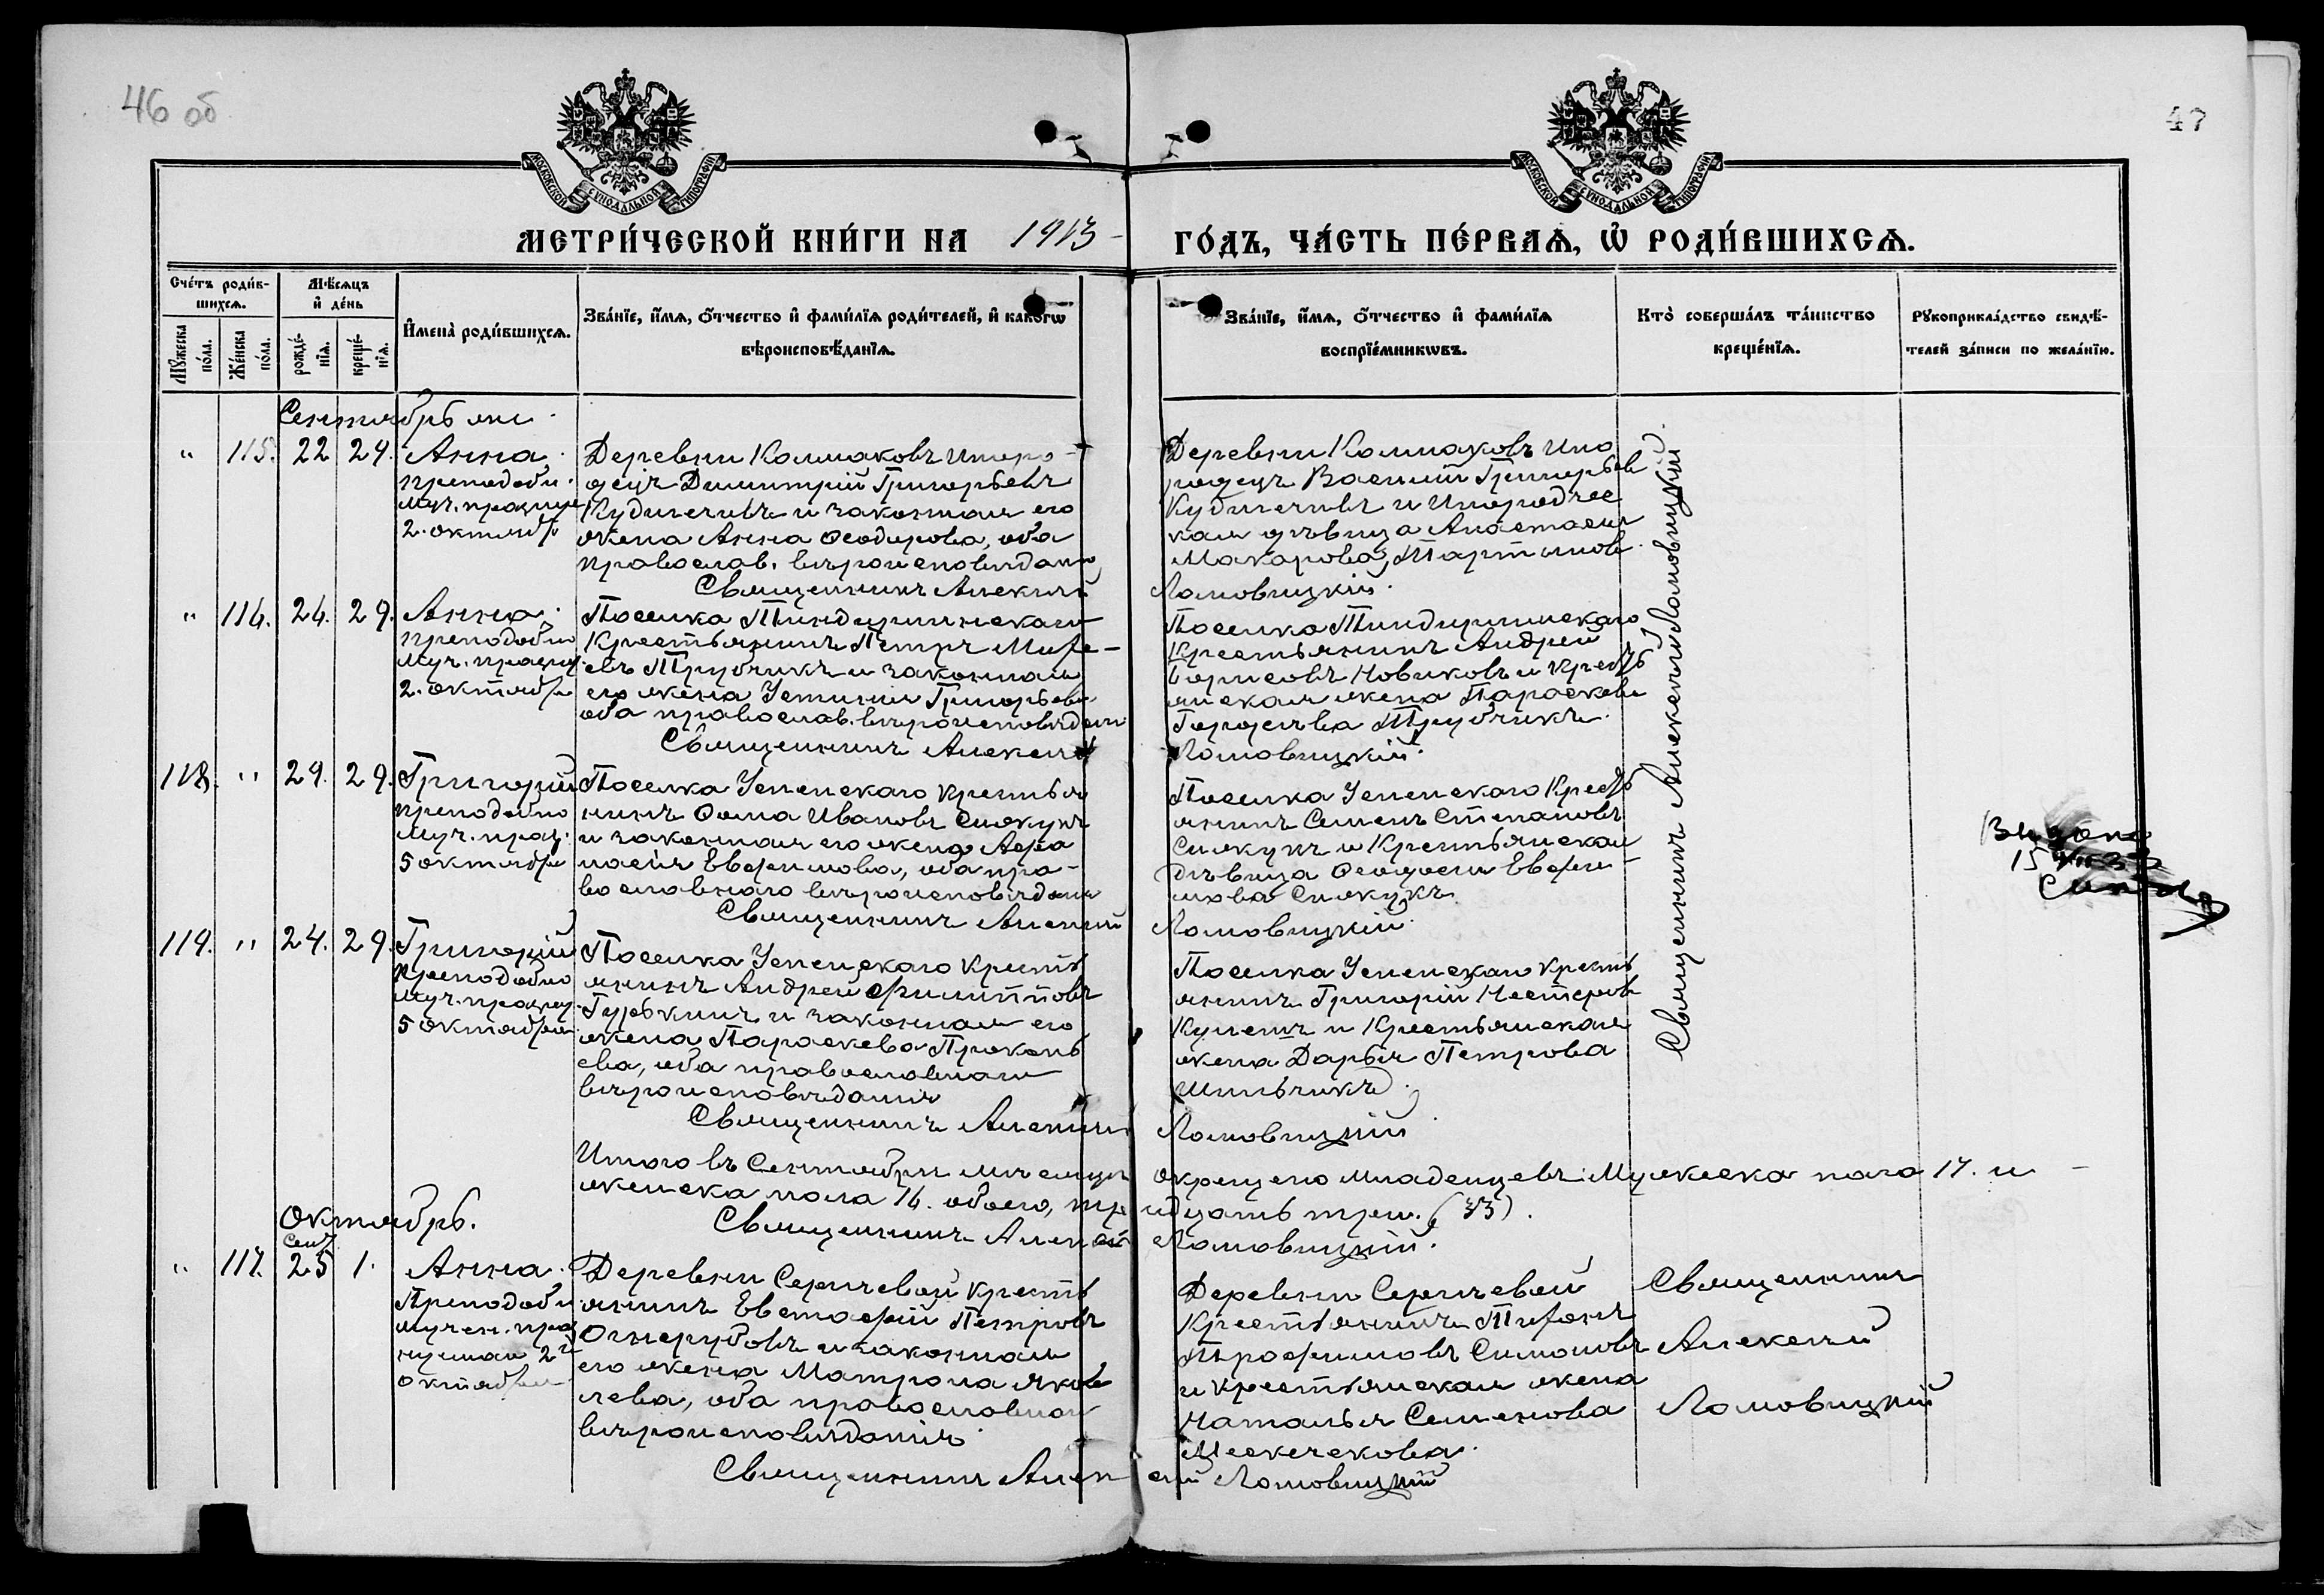 46 об
47
МОСКОВСКОЙ СѴНОДАЛЬНОЙ ТИПОГРАФІИ
МОСКОВСКОЙ СѴНОДАЛЬНОЙ ТИПОГРАФІИ
МЕТРИ́ЧЕСКОЙ КНИ́ГИ НА 1913 ГО́ДЪ, ЧА́СТЬ ПЕ́РВАѦ, Ѡ҆ РОДИ́ВШИХСѦ.
Сче́тъ роди́в-
шихсѧ.
Мꙋ́жеска по́ла.
Же́нска по́ла.
Мѣ́сѧцъ
и҆ де́нь
рожде́-
нїѧ.
креще́-
нїѧ.
И҆мена̀ роди́вшихсѧ.
Зва́нїе, и҆́мѧ, ѻ҆́тчество и҆ фами́лїѧ роди́телей, и҆ како́гѡ
вѣроисповѣ́данїѧ.
Зва́нїе, и҆́мѧ, ѻ҆́тчество и҆ фами́лїѧ
воспрїе́мникѡвъ.
Кто̀ соверша́лъ та́инство
креще́нїѧ.
Рꙋкоприкла́дство свидѣ́-
телей за́писи по жела́нїю.
Сентябрь мц
" 115. 22 29.
Анна
преподобн.
муч. празнуе
2. октябр
Деревни Колмаковъ Иноро-
децъ Димитрій Григорьевъ
и законная его
жена Анна Ѳеодорова, оба
православ. вѣроисповѣдан
Священникъ Алексій Ломовицкій.
Деревни Колмаковъ Ино
родецъ Василій Григорьев
и Инородчес
кая дѣвица Анастасія
Макарова Тартынов
" 116. 24. 29.
Анна.
преподобно
муч. празну
2. октября
Поселка Тиндерлинскаго
Крестьянинъ Петръ Михе-
евъ Трубчикъ и законная
его жена Устинія Григорьева
оба православ. вѣроисповѣдан
Священникъ Алексій Ломовицкій.
Поселка Тиндерлинскаго
Крестьянинъ Андрей
Борисовъ Новиковъ и Кресть
янская жена Параскева
Трубчикъ.
118. " 24. 29.
Григорій
преподобно
муч. праз.
5 октября
Поселка Успенскаго Крестья
нинъ Ѳома Ивановъ
и законная его жена Афа
насія Евфимова, оба пра-
вославнаго вѣроисповѣдан
Священникъ Алексій Ломовицкій
Поселка Успенскаго Кресть
янинъ Семенъ Степановъ
и Крестьянская
дѣвица Ѳеодосія Евфи-
мова
119. " 24. 29.
Григорій
преподобно
муч. празну
5 октября
Поселка Успенскаго Кресть
янинъ Андрей Филипповъ
Гурькинъ и законная его
жена Параскева Прокопь
ева, оба православнаго
вѣроисповѣданія
Священникъ Алексій Ломовицкій
Поселка Успенскаго Кресть
янинъ Григорій Нестеров
и Крестьянская
жена Дарья Петрова
Шильчикъ.
Священникъ Алексій Ломовицкій
Итого въ Сентябрѣ мѣсяцѣ окрещено младенцевъ Мужеска пола 17. и
женска пола 16. обоего, тридцать три. (33).
Священникъ Алексій Ломовицкій.
Октябрь.
Сент
" 117. 25 1.
Анна.
Преподобн
мучен. праз
нуемая 2го
октября
Деревни Сергиевой Кресть
янинъ Евстафій Петровъ
Огнерубовъ и законная
его жена Матрона Яков
лева, оба православнаго
вѣроисповѣданія.
Священникъ Алексій Ломовицкій
Деревни Сергиевой
Крестьянинъ Тихонъ
Трофимовъ Симоновъ
и крестьянская жена
Наталья Семенова
Священникъ
Алексій
Ломовицкій
Выдано
15